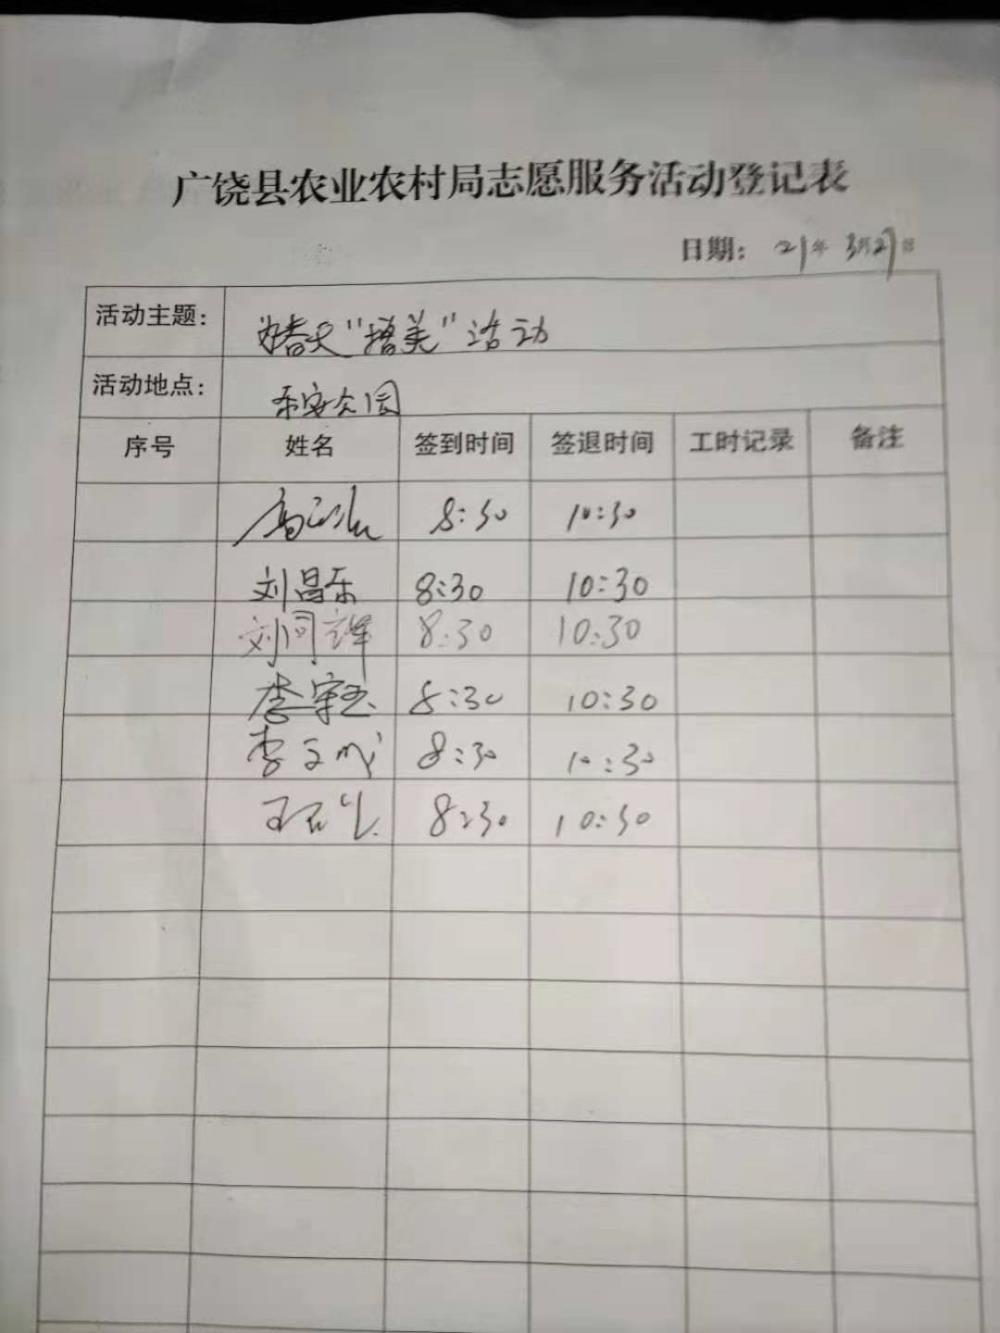 广饶县农业农村局志愿服务活动登记表
日期: 21年 3月27日
活动主题: 为春天"增美"活动
活动地点: 乐安公园
序号 姓名 签到时间 签退时间 工时记录 备注
8:30 10:30
刘昌乐 8:30 10:30
刘同辉 8:30 10:30
李 8:30 10:30
李文成 8:30 10:30
8:30 10:30